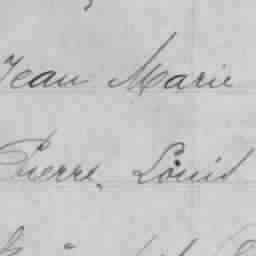 Jean Marie
Pierre, Louis